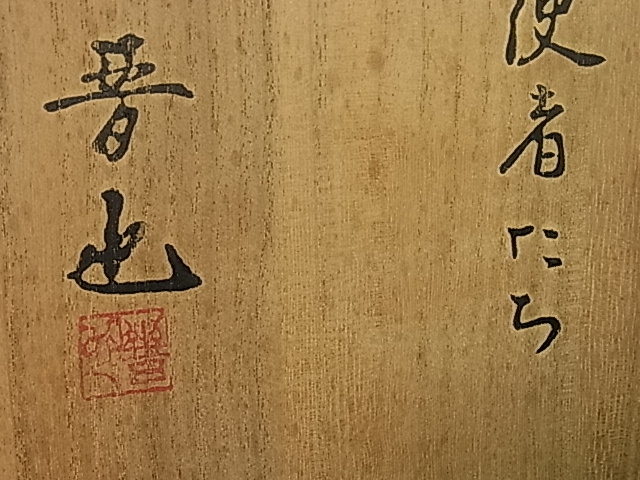 使者たち
晋也